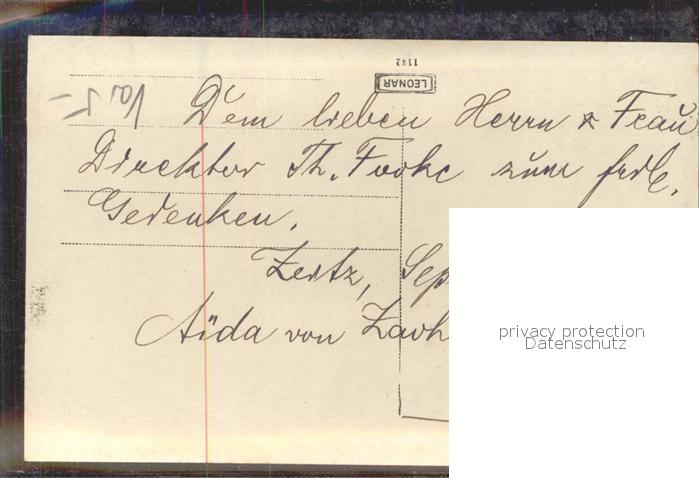 1142
LEONAR
Dem lieben Herrn & Frau
Direktor Th. Fooke zum frdl.
Gedenken.
Zeitz, Sep
Aïda von Zavh
privacy protection
Datenschutz